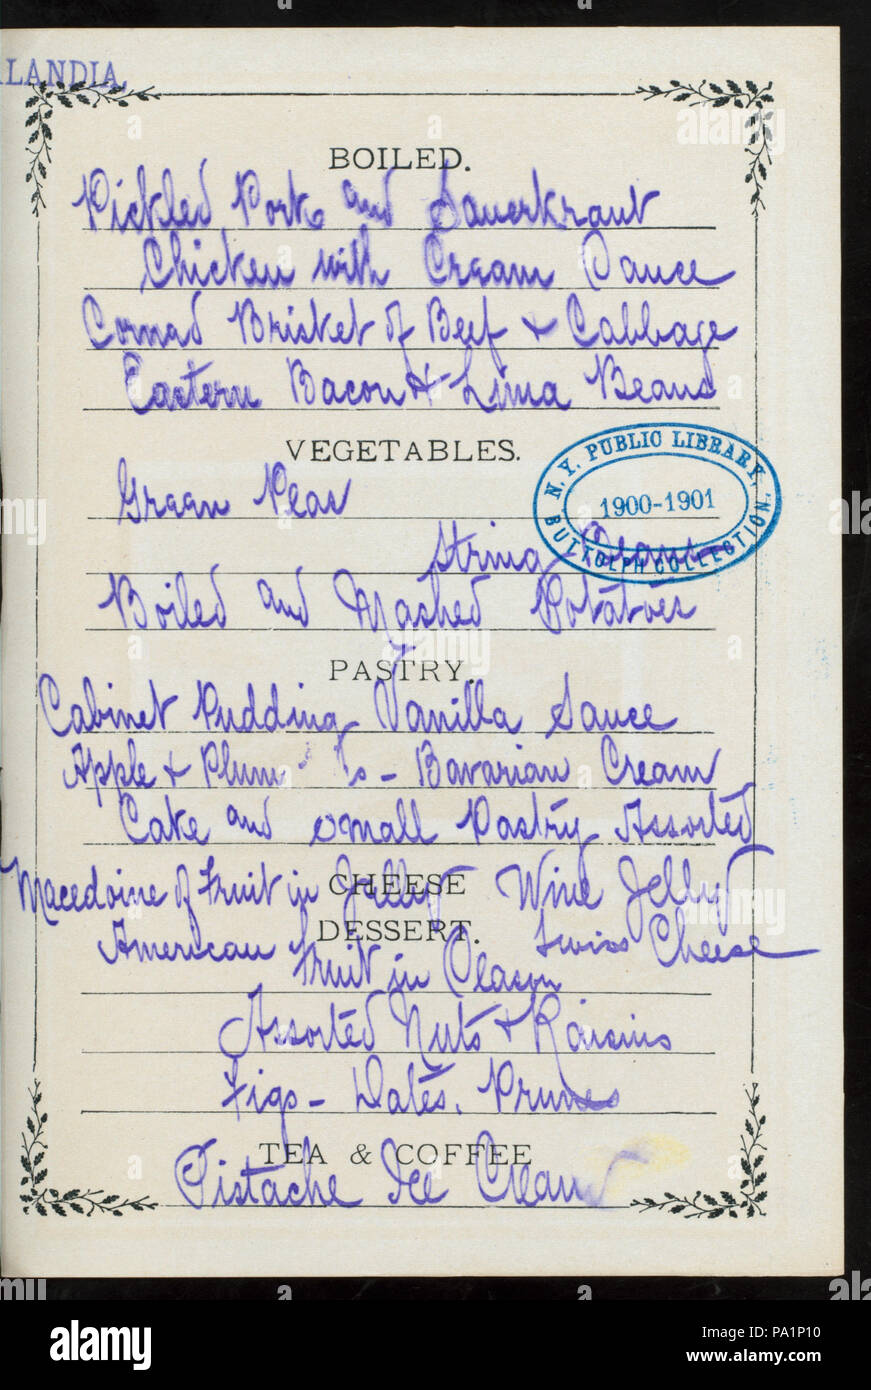 LANDIA.
BOILED.
Pickled Pork and Sauerkraut
Chicken with Cream Sauce
Corned Brisket of Beef & Cabbage
Eastern Bacon & Lima Beans
VEGETABLES.
Green Peas
N. Y. PUBLIC LIBRARY,
1900-1901
BUTTOLPH COLLECTION.
String Beans
Boiled and Mashed Potatoes
PASTRY.
Cabinet Pudding Vanilla Sauce
Apple & Plum s - Bavarian Cream
Cake and Small Pastry Assorted
CHEESE
Macedoine of Fruit in Jelly Wine Jelly
DESSERT.
American Swiss Cheese
Fruit in Season
Assorted Nuts & Raisins
Figs - Dates. Prunes
TEA & COFFEE
Pistache Ice Cream
alamy
alamy
a
a
a
a
a
alamy
Image ID: PA1P10
www.alamy.com